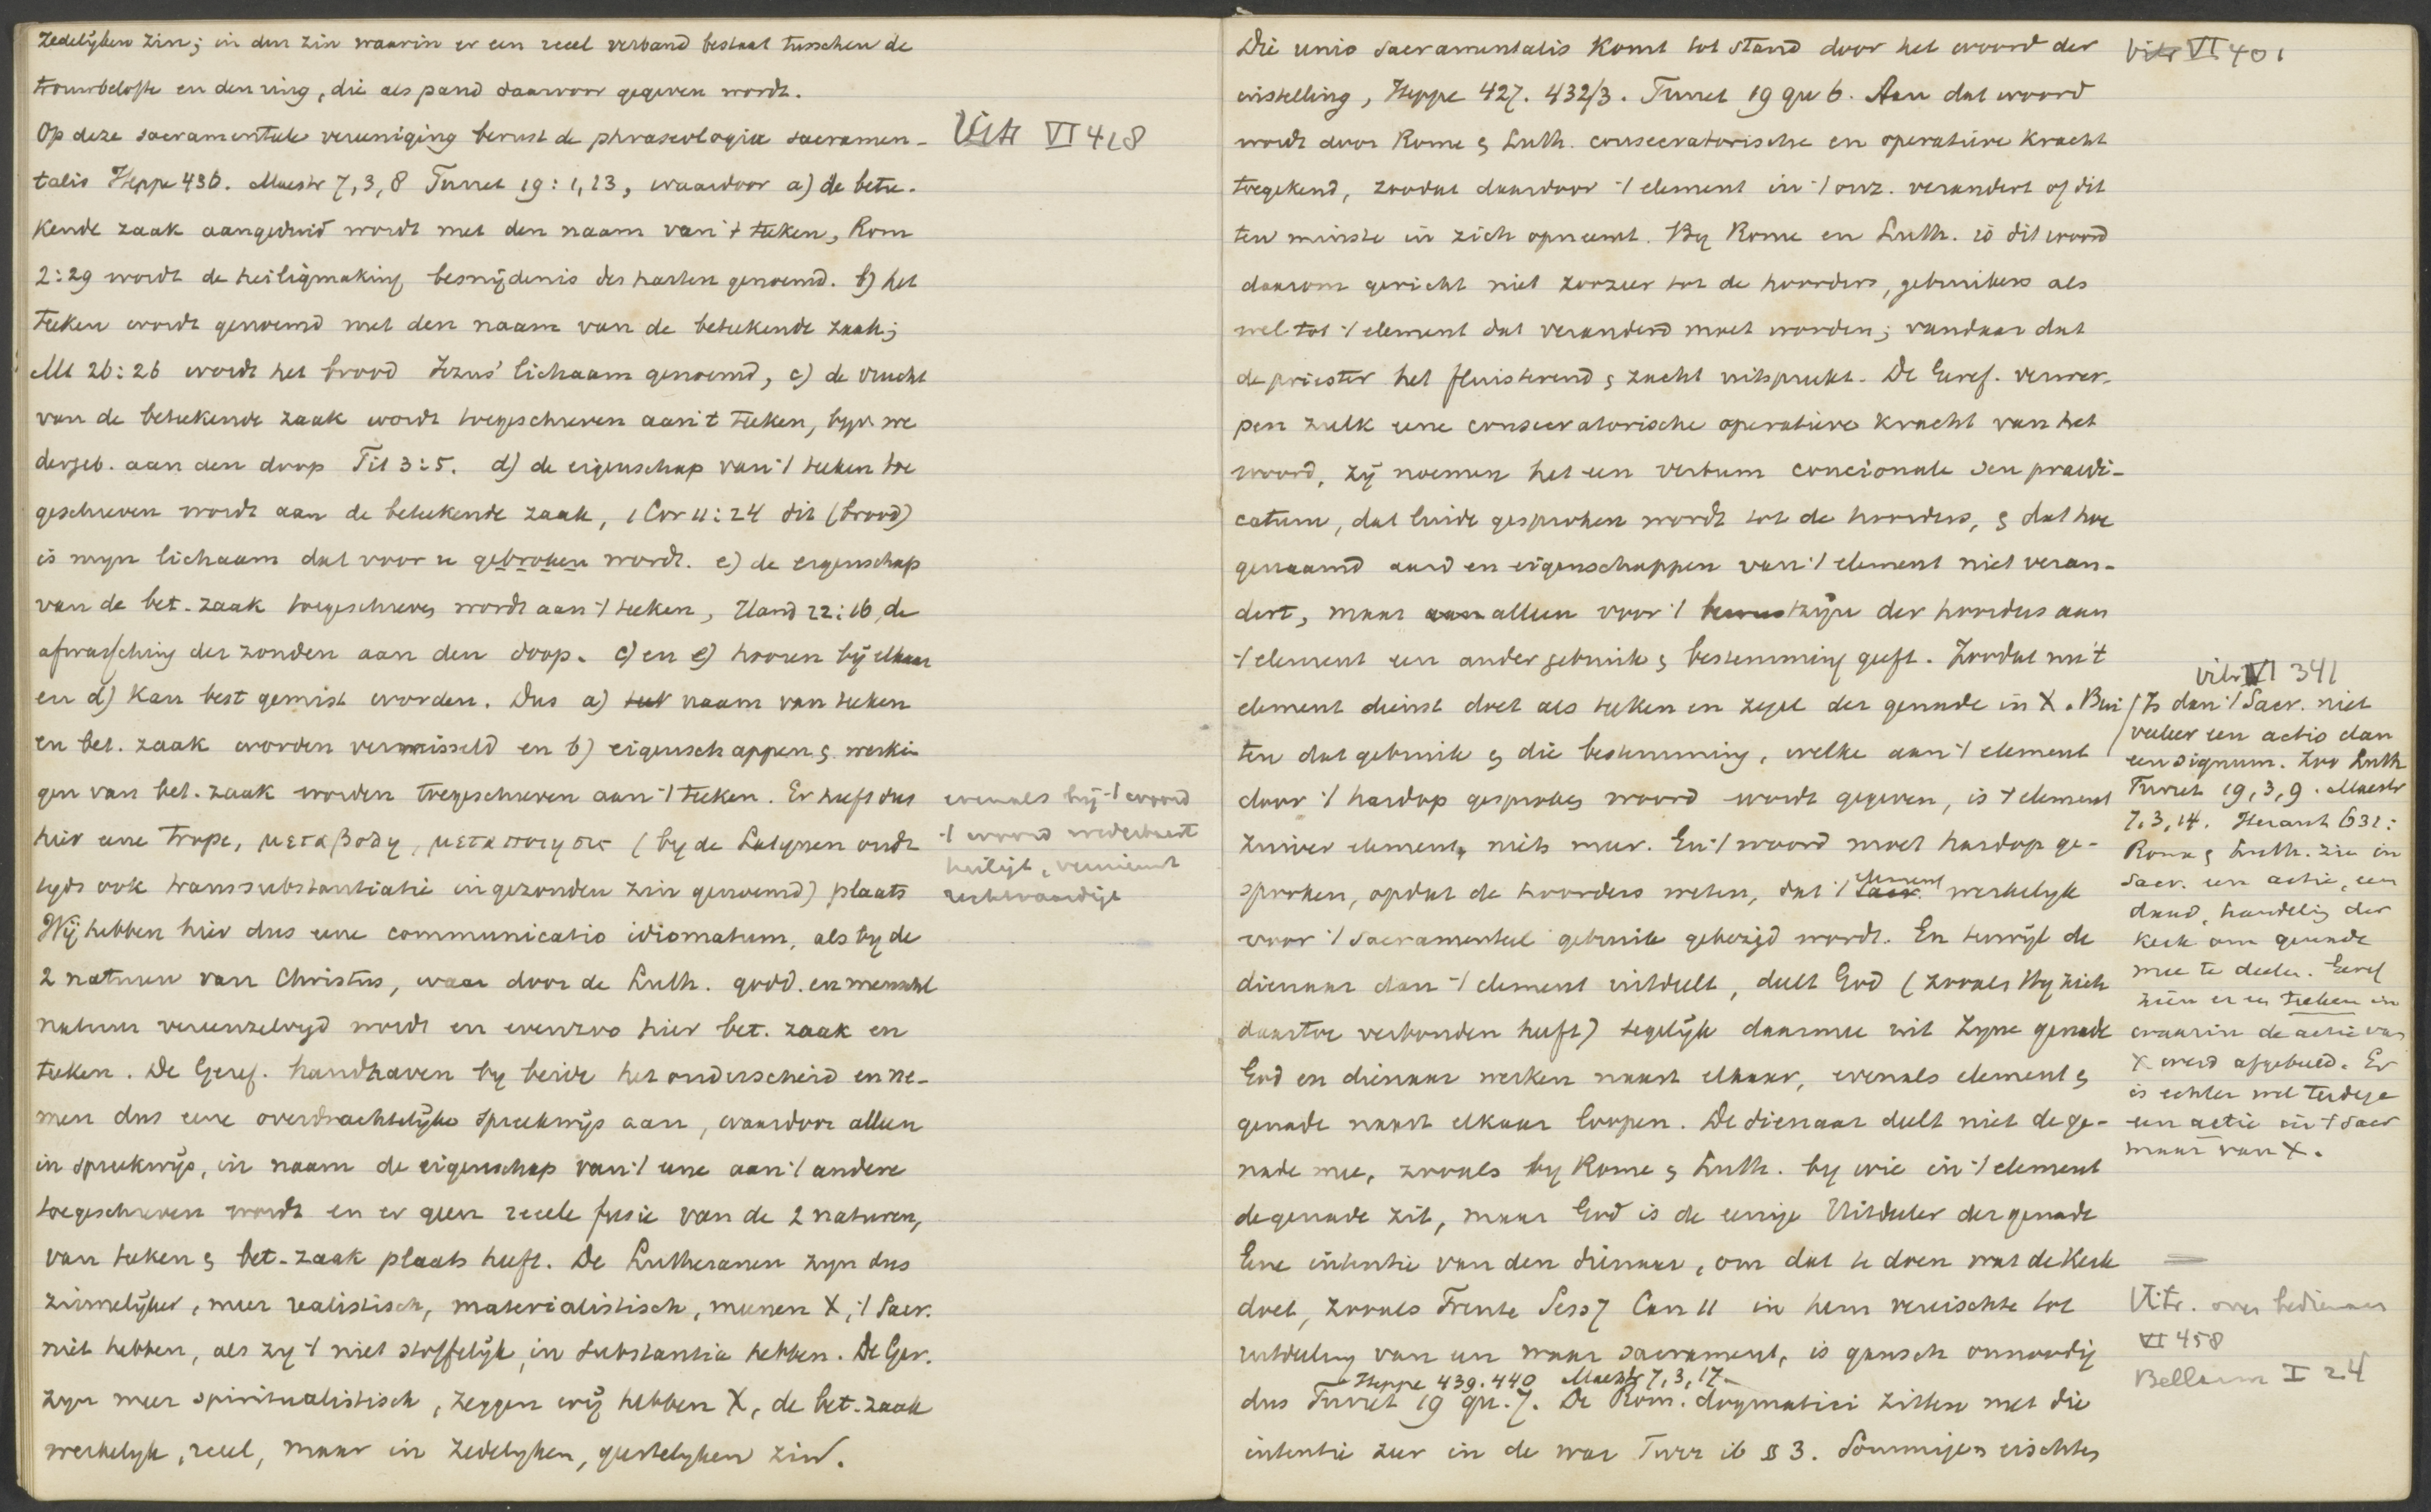 zedelijken zin; in den zin waarin er een reeel verband bestaat tusschen de
trouwbelofte en den ring, die als pand daarvoor gegeven wordt.
Op deze sacramenteele vereeniging berust de phraseologia sacramen-
talis Heppe 436. Maestr 7, 3, 8 Turret 19: 1, 13, waardoor a) de betee-
kende zaak aangeduid wordt met den naam van 't teeken, Rom
2:29 wordt de heiligmaking besnijdenis des harten genoemd. b) het
teeken wordt genoemd met den naam van de beteekende zaak;
Mt 26:26 wordt het brood Jezus' lichaam genoemd, c) de vrucht
van de beteekende zaak wordt toegeschreven aan 't teeken, byv. we
dergeb. aan den doop Tit 3:5. d) de eigenschap van 't teeken toe
geschreven wordt aan de beteekende zaak, 1 Cor 11:24 dit (brood)
is myn lichaam dat voor u gebroken wordt. e) de eigenschap
van de bet. zaak toegeschreven wordt aan 't teeken, Hand 22:16, de
afwassching der zonden aan den doop. c) en e) hooren bij elkaar
en d) kan best gemist worden. Dus a) naam van teeken
en bet. zaak worden verwisseld en b) eigenschappen & werkin
gen van bet. zaak worden toegeschreven aan 't teeken. Er heeft dus
hier eene trope, μεταβολη, μεταποιησις (by de Latynen oudt
tyds ook transsubstantiatie in gezonden zin genoemd) plaats
Wij hebben hier dus eene communicatio idiomatum, als by de
2 naturen van Christus, waar door de Luth. godd. en menschl
natuur vereenzelvigd wordt en evenzoo hier bet. zaak en
teeken. De Geref. handhaven by beide het onderscheid en ne-
men dus eene overdrachtelijke spreekwijs aan, waardoor alleen
in spreekwijs, in naam de eigenschap van 't eene aan 't andere
toegeschreven wordt en er geen reeele fusie van de 2 naturen,
van teeken & bet. zaak plaats heeft. De Lutheranen zyn dus
zinnelijker, meer realistisch, materialistisch, meenen X, 't Sacr.
niet hebben, als zy 't niet stoffelijk, in substantia hebben. De Ger.
zyn meer spiritualistisch, zeggen wij hebben X, de bet. zaak
werkelyk, reeel, maar in zedelyken, geestelyken zin.
Vitr VI 418
evenals bij 't woord
't woord wederbaart
heiligt, vernieuwt
rechtvaardigt
Die unio sacramentalis komt tot stand door het woord der
instelling, Heppe 427. 432/3. Turret 19 qu 6. Aan dat woord
wordt door Rome & Luth. consecratorische en operatieve kracht
toegekend, zoodat daardoor 't element in 't onz. verandert of dit
ten minste in zich opneemt. By Rome en Luth. is dit woord
daarom gericht niet zoozeer tot de hoorders, gebruikers als
wel tot 't element dat veranderd moet worden; vandaar dat
de priester het fluisterend & zacht uitspreekt. De Geref. verwer-
pen zulk eene consecratorische operatieve kracht van het
woord, zij noemen het een verbum concionale seu praedi-
catum, dat luide gesproken wordt tot de hoorders, & dat hoe
genaamd aard en eigenschappen van 't element niet veran-
dert, maar alleen voor 't bewustzijn der hoorders aan
't element een ander gebruik & bestemming geeft. Zoodat nu 't
element dienst doet als teeken en zegel der genade in X. Bui
ten dat gebruik & die bestemming, welke aan 't element
door 't hardop gesproken woord wordt gegeven, is 't element
zuiver element, niets meer. En 't woord moet hardop ge-
sproken, opdat de hoorders weten, dat 't element werkelyk
voor 't sacramenteel gebruik gebezigd wordt. En terwijl de
dienaar dan 't element uitdeelt, deelt God (zooals Hy zich
daartoe verbonden heeft) tegelijk daarmee uit Zyne genade
God en dienaar werken naast elkaar, evenals element &
genade naast elkaar loopen. De dienaar deelt niet de ge-
nade mee, zooals by Rome & Luth. by wie in 't element
de genade zit, maar God is de eenige Uitdeeler der genade
Eene intentie van den dienaar, om dat te doen wat de Kerk
doet, zooals Trente Sess 7 Can 11 in hem vereischte tot
uitdeeling van een waar sacrament, is gansch onnoodig
Heppe 439. 440 Maestr 7, 3, 17.
dus Turret 19 qu. 7. De Rom. dogmatici zitten met die
intentie zeer in de war Turr ib § 3. Sommigen eischten
Vitr VI 401
Vitr VI 341
Is dan 't Sacr. niet
veeleer een actio dan
een signum. Zoo Luth
Turret 19, 3, 9. Maestr
7, 3, 14. 631:
Rome & Luth. zien in
Sacr. een actie, een
daad, handeling der
kerk om genade
mee te deelen. Geref
zien er een teeken in
waarin de actie van
X werd afgebeeld. Er
is echter wel terdege
een actie in 't Sacr
maar van X.
Vitr. over bedienaar
VI 458
Bellarm I 24